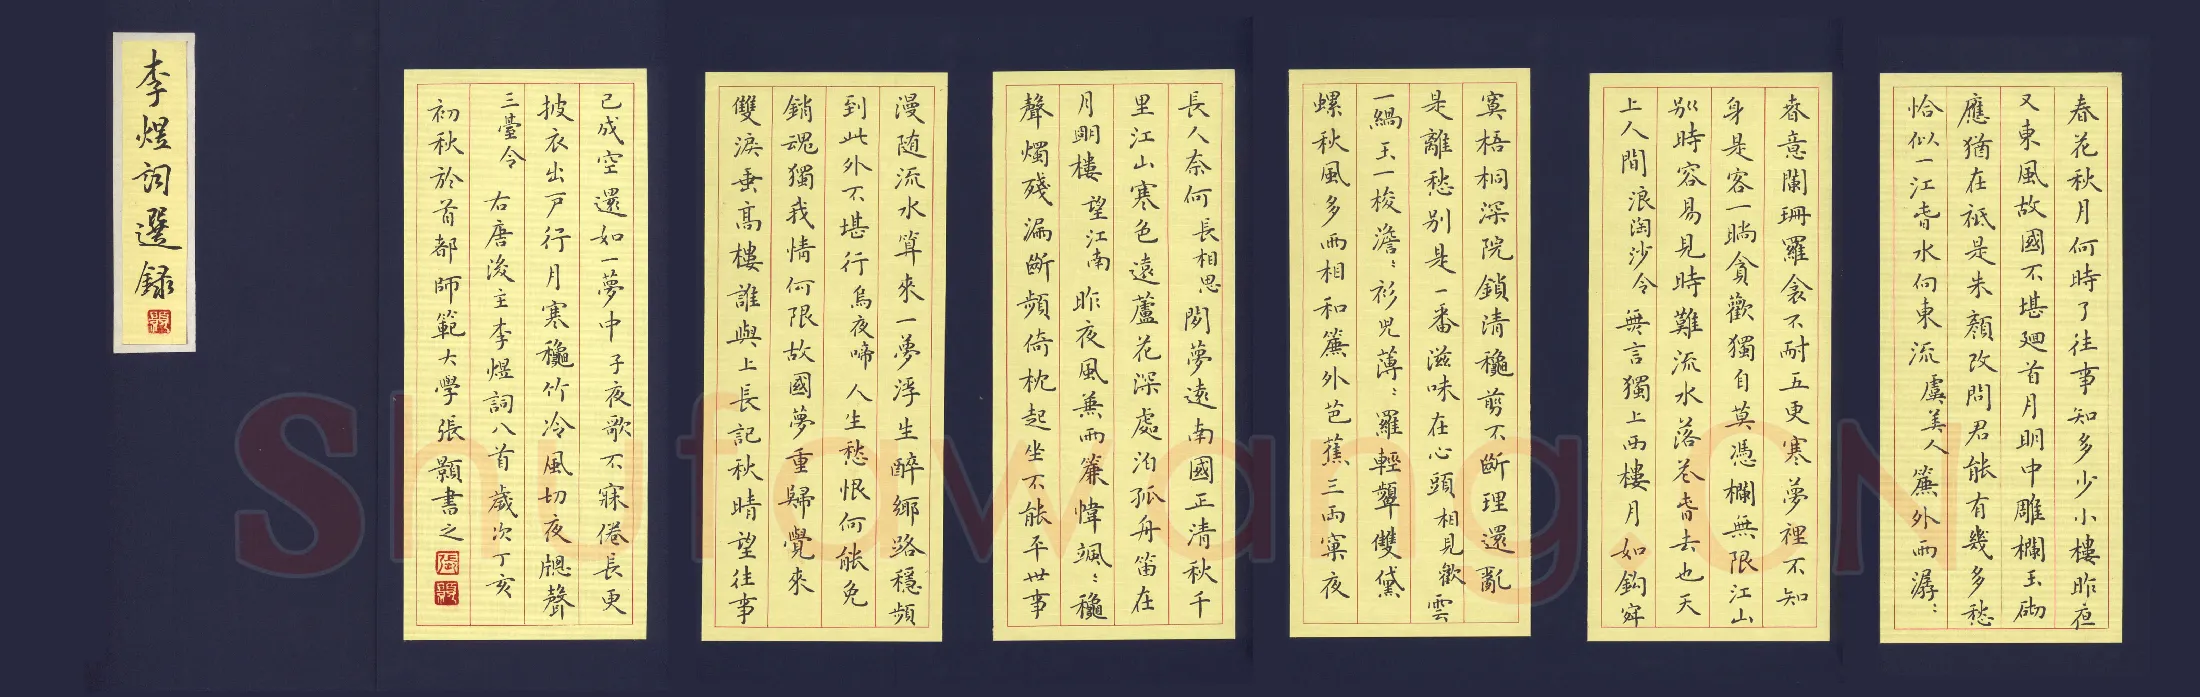 李煜詞選錄
春花秋月何時了往事知多少小樓昨夜
又東風故國不堪廻首月明中雕欄玉砌
應猶在祗是朱顏改問君能有幾多愁
恰似一江春水向東流 虞美人 簾外雨潺〻
春意闌珊羅衾不耐五更寒夢裡不知
身是客一晌貪歡獨自莫憑欄無限江山
別時容易見時難流水落花春去也天
上人間 浪淘沙令 無言獨上西樓月如鈎寂
寞梧桐深院鎖清龝剪不斷理還亂
是離愁別是一番滋味在心頭 相見歡 雲
一緺玉一梭澹〻衫兒薄〻羅輕顰雙黛
螺秋風多雨相和簾外芭蕉三兩窠夜
長人奈何 長相思 閑夢遠南國正清秋千
里江山寒色遠蘆花深處泊孤舟笛在
月明樓 望江南 昨夜風兼雨簾幃颯〻龝
聲燭殘漏斷頻倚枕起坐不能平世事
漫随流水算來一夢浮生醉鄉路穩頻
到此外不堪行 烏夜啼 人生愁恨何能免
銷魂獨我情何限故國夢重歸覺來
雙淚垂高樓誰與上長記秋晴望往事
已成空還如一夢中 子夜歌 不寐倦長更
披衣出戶行月寒龝竹冷風切夜牕聲
三臺令 右唐後主李煜詞八首 歲次丁亥
初秋於首都師範大學張顥書之
Shufawang.CN